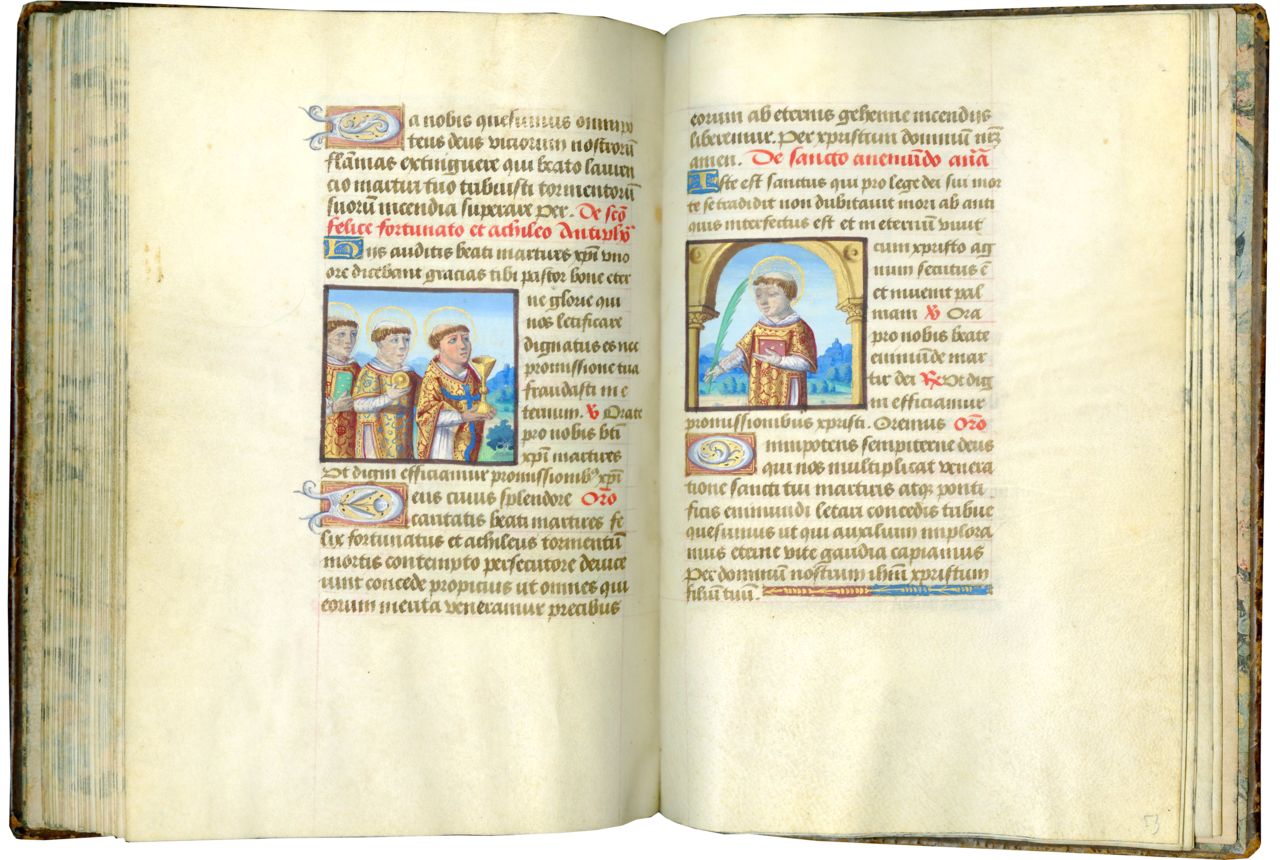 Da nobis quesumus omnipo
tens deus viciorum nostrorū
flāmas extinguere qui beato lauren
cio martiri tuo tribuisti tormentorū
suorū incendia superare per. De scō
felice fortunato et achileo Antiph̄
His auditis beati martires xp̄i uno
ore dicebant gracias tibi pastor bone eter
ne glorie qui
nos letificare
dignatus es nec
promissione tua
fraudasti in e
ternum. ℣ Orate
pro nobis bt̄i
xp̄i martires
Ut digni efficiamur promissionibꝰ xp̄i
Deus cuius splendore Orō
caritatis beati martires fe
lix fortunatus et achileus tormentū
mortis contempto persecutore device
runt concede propicius ut omnes qui
eorum merita veneramur precibus
eorum ab eternis gehenne incendiis
liberemur. Per xpristum dominū nr̄m
amen. De sancto anemūdo anā
Iste est sanctus qui pro lege dei sui mor
te se tradidit non dubitavit mori ab ani
quis interfectus est et in eternū vivit
cum xpristo ag
num secutus ē
et invenit pal
mam ℣ Ora
pro nobis beate
enimūde mar
tir dei ℟ Ut dig
ni efficiamur
promissionibus xpristi. Oremus Orō
Omnipotens sempiterne deus
qui nos multiplicat venera
tione sancti tui martiris atqꝫ ponti
ficis enimundi letari concedis tribue
quesumus ut qui auxilium implora
mus eterne vite gaudia capiamus
Per dominū nostrum ihm̄ xpristum
filiū tuū.